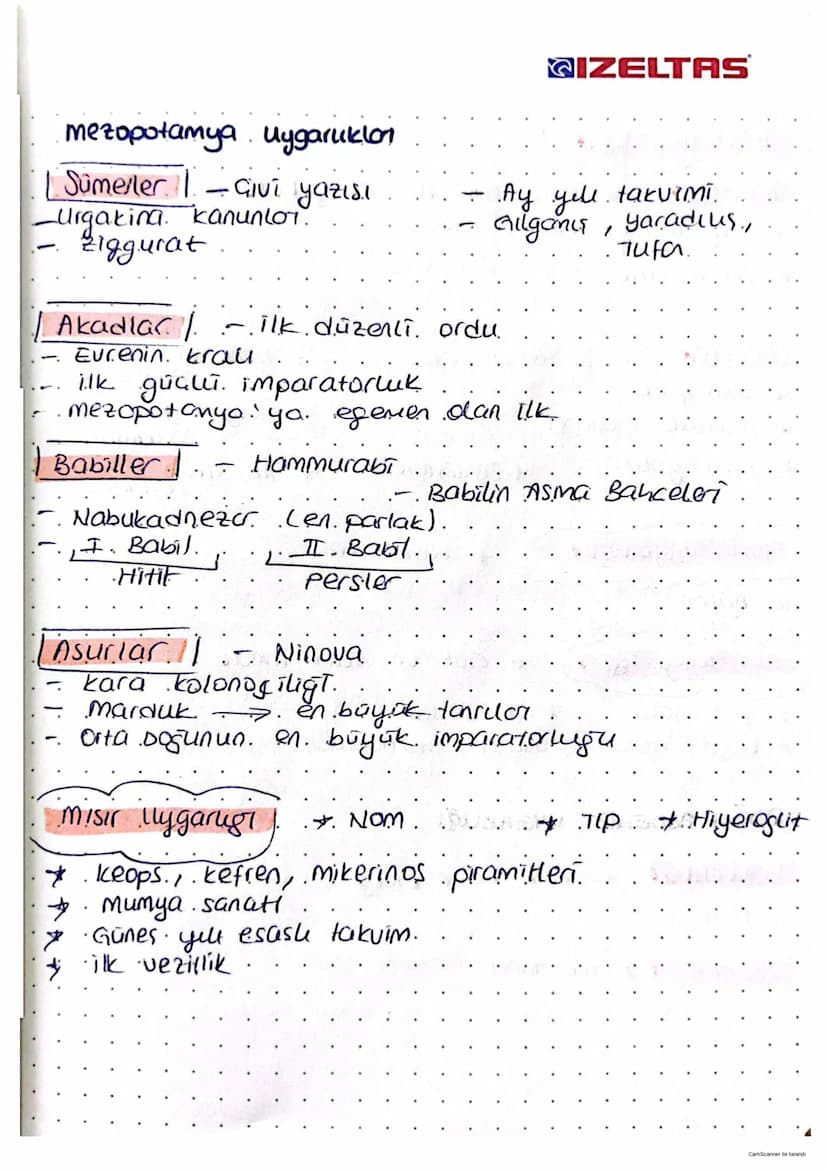 IZELTAS
mezopotamya uygarlıkları
Sümerler - Çivi yazısı - Ay yılı takvimi
- Urgakina kanunları - Gılgamış, yaradılış,
- Ziggurat Tufan
Akadlar - ilk düzenli ordu
- Evrenin kralı
- ilk güçlü imparatorluk
- mezopotamya'ya egemen olan ilk
Babiller - Hammurabi
- Babilin Asma Bahçeleri
- Nabukadnezar (en parlak)
- I. Babil II. Babil
Hitit Persler
Asurlar - Ninova
- kara kolonociliği
- Marduk → en büyük tanrıları
- Orta Doğunun en büyük imparatorluğu
Mısır Uygarlığı * Nom * TIP * Hiyeroglif
* Keops, Kefren, mikerinos piramitleri
* Mumya sanatı
* Güneş yılı esaslı takvim.
* ilk vezirlik
CamScanner ile tarandı